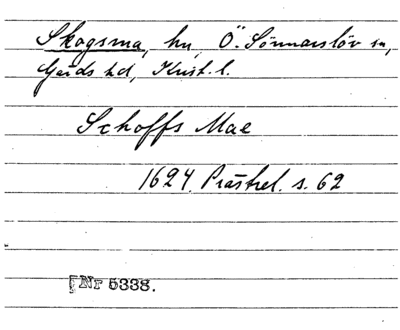 Skogsma, hu, Ö. Sönnarslöv sn,
Gärds hd, Krist. l.
Schoffs Mae
1624. Prästrel. s. 62
[Nr 5338.